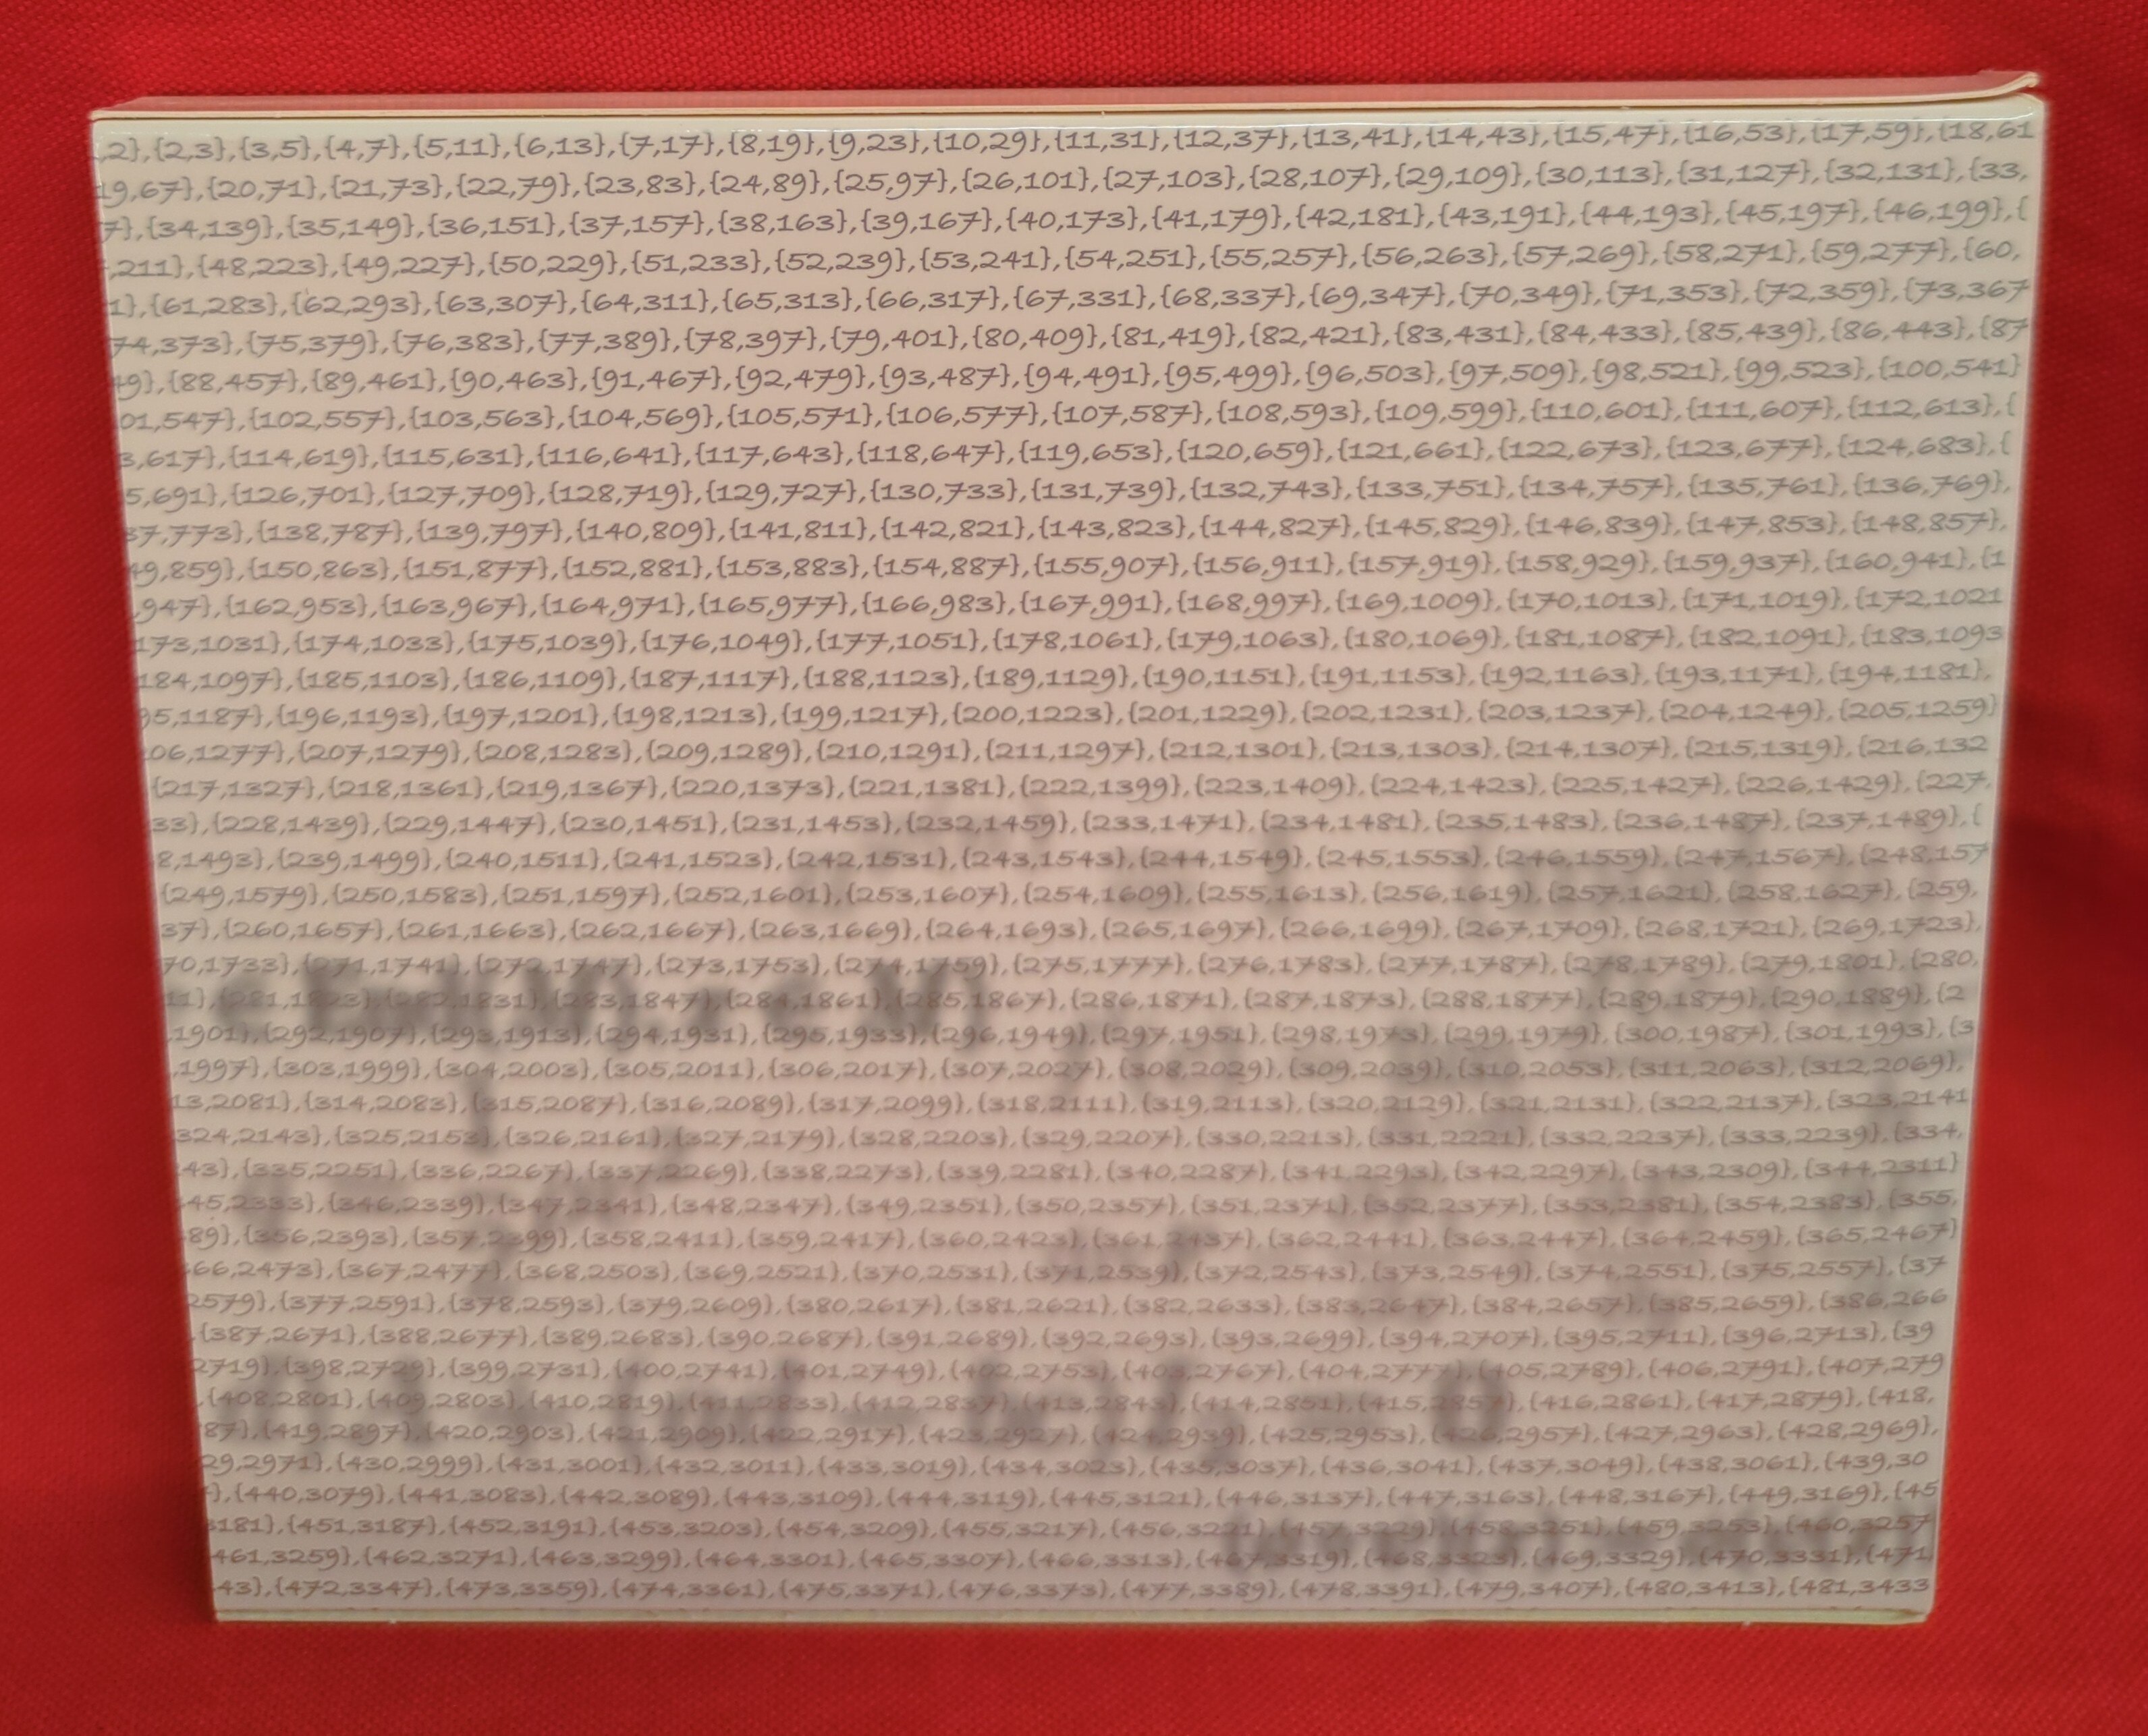 ,2},{2,3},{3,5},{4,7},{5,11},{6,13},{7,17},{8,19},{9,23},{10,29},{11,31},{12,37},{13,41},{14,43},{15,47},{16,53},{17,59},{18,61
19,67},{20,71},{21,73},{22,79},{23,83},{24,89},{25,97},{26,101},{27,103},{28,107},{29,109},{30,113},{31,127},{32,131},{33,
7},{34,139},{35,149},{36,151},{37,157},{38,163},{39,167},{40,173},{41,179},{42,181},{43,191},{44,193},{45,197},{46,199},{
,211},{48,223},{49,227},{50,229},{51,233},{52,239},{53,241},{54,251},{55,257},{56,263},{57,269},{58,271},{59,277},{60,
1},{61,283},{62,293},{63,307},{64,311},{65,313},{66,317},{67,331},{68,337},{69,347},{70,349},{71,353},{72,359},{73,367
74,373},{75,379},{76,383},{77,389},{78,397},{79,401},{80,409},{81,419},{82,421},{83,431},{84,433},{85,439},{86,443},{87
49},{88,457},{89,461},{90,463},{91,467},{92,479},{93,487},{94,491},{95,499},{96,503},{97,509},{98,521},{99,523},{100,541}
01,547},{102,557},{103,563},{104,569},{105,571},{106,577},{107,587},{108,593},{109,599},{110,601},{111,607},{112,613},{
3,617},{114,619},{115,631},{116,641},{117,643},{118,647},{119,653},{120,659},{121,661},{122,673},{123,677},{124,683},{
5,691},{126,701},{127,709},{128,719},{129,727},{130,733},{131,739},{132,743},{133,751},{134,757},{135,761},{136,769},
37,773},{138,787},{139,797},{140,809},{141,811},{142,821},{143,823},{144,827},{145,829},{146,839},{147,853},{148,857},
49,859},{150,863},{151,877},{152,881},{153,883},{154,887},{155,907},{156,911},{157,919},{158,929},{159,937},{160,941},{1
,947},{162,953},{163,967},{164,971},{165,977},{166,983},{167,991},{168,997},{169,1009},{170,1013},{171,1019},{172,1021
173,1031},{174,1033},{175,1039},{176,1049},{177,1051},{178,1061},{179,1063},{180,1069},{181,1087},{182,1091},{183,1093
184,1097},{185,1103},{186,1109},{187,1117},{188,1123},{189,1129},{190,1151},{191,1153},{192,1163},{193,1171},{194,1181},
95,1187},{196,1193},{197,1201},{198,1213},{199,1217},{200,1223},{201,1229},{202,1231},{203,1237},{204,1249},{205,1259}
06,1277},{207,1279},{208,1283},{209,1289},{210,1291},{211,1297},{212,1301},{213,1303},{214,1307},{215,1319},{216,132
{217,1327},{218,1361},{219,1367},{220,1373},{221,1381},{222,1399},{223,1409},{224,1423},{225,1427},{226,1429},{227,
33},{228,1439},{229,1447},{230,1451},{231,1453},{232,1459},{233,1471},{234,1481},{235,1483},{236,1487},{237,1489},{
8,1493},{239,1499},{240,1511},{241,1523},{242,1531},{243,1543},{244,1549},{245,1553},{246,1559},{247,1567},{248,157
{249,1579},{250,1583},{251,1597},{252,1601},{253,1607},{254,1609},{255,1613},{256,1619},{257,1621},{258,1627},{259,
37},{260,1657},{261,1663},{262,1667},{263,1669},{264,1693},{265,1697},{266,1699},{267,1709},{268,1721},{269,1723},
70,1733},{271,1741},{272,1747},{273,1753},{274,1759},{275,1777},{276,1783},{277,1787},{278,1789},{279,1801},{280,
11},{281,1823},{282,1831},{283,1847},{284,1861},{285,1867},{286,1871},{287,1873},{288,1877},{289,1879},{290,1889},{2
,1901},{292,1907},{293,1913},{294,1931},{295,1933},{296,1949},{297,1951},{298,1973},{299,1979},{300,1987},{301,1993},{3
,1997},{303,1999},{304,2003},{305,2011},{306,2017},{307,2027},{308,2029},{309,2039},{310,2053},{311,2063},{312,2069},
13,2081},{314,2083},{315,2087},{316,2089},{317,2099},{318,2111},{319,2113},{320,2129},{321,2131},{322,2137},{323,2141
324,2143},{325,2153},{326,2161},{327,2179},{328,2203},{329,2207},{330,2213},{331,2221},{332,2237},{333,2239},{334,
43},{335,2251},{336,2267},{337,2269},{338,2273},{339,2281},{340,2287},{341,2293},{342,2297},{343,2309},{344,2311}
45,2333},{346,2339},{347,2341},{348,2347},{349,2351},{350,2357},{351,2371},{352,2377},{353,2381},{354,2383},{355,
89},{356,2393},{357,2399},{358,2411},{359,2417},{360,2423},{361,2437},{362,2441},{363,2447},{364,2459},{365,2467}
66,2473},{367,2477},{368,2503},{369,2521},{370,2531},{371,2539},{372,2543},{373,2549},{374,2551},{375,2557},{37
2579},{377,2591},{378,2593},{379,2609},{380,2617},{381,2621},{382,2633},{383,2647},{384,2657},{385,2659},{386,266
,{387,2671},{388,2677},{389,2683},{390,2687},{391,2689},{392,2693},{393,2699},{394,2707},{395,2711},{396,2713},{39
2719},{398,2729},{399,2731},{400,2741},{401,2749},{402,2753},{403,2767},{404,2777},{405,2789},{406,2791},{407,279
,{408,2801},{409,2803},{410,2819},{411,2833},{412,2837},{413,2843},{414,2851},{415,2857},{416,2861},{417,2879},{418,
87},{419,2897},{420,2903},{421,2909},{422,2917},{423,2927},{424,2939},{425,2953},{426,2957},{427,2963},{428,2969},
29,2971},{430,2999},{431,3001},{432,3011},{433,3019},{434,3023},{435,3037},{436,3041},{437,3049},{438,3061},{439,30
},{440,3079},{441,3083},{442,3089},{443,3109},{444,3119},{445,3121},{446,3137},{447,3163},{448,3167},{449,3169},{45
3181},{451,3187},{452,3191},{453,3203},{454,3209},{455,3217},{456,3221},{457,3229},{458,3251},{459,3253},{460,3257
461,3259},{462,3271},{463,3299},{464,3301},{465,3307},{466,3313},{467,3319},{468,3323},{469,3329},{470,3331},{471
43},{472,3347},{473,3359},{474,3361},{475,3371},{476,3373},{477,3389},{478,3391},{479,3407},{480,3413},{481,3433